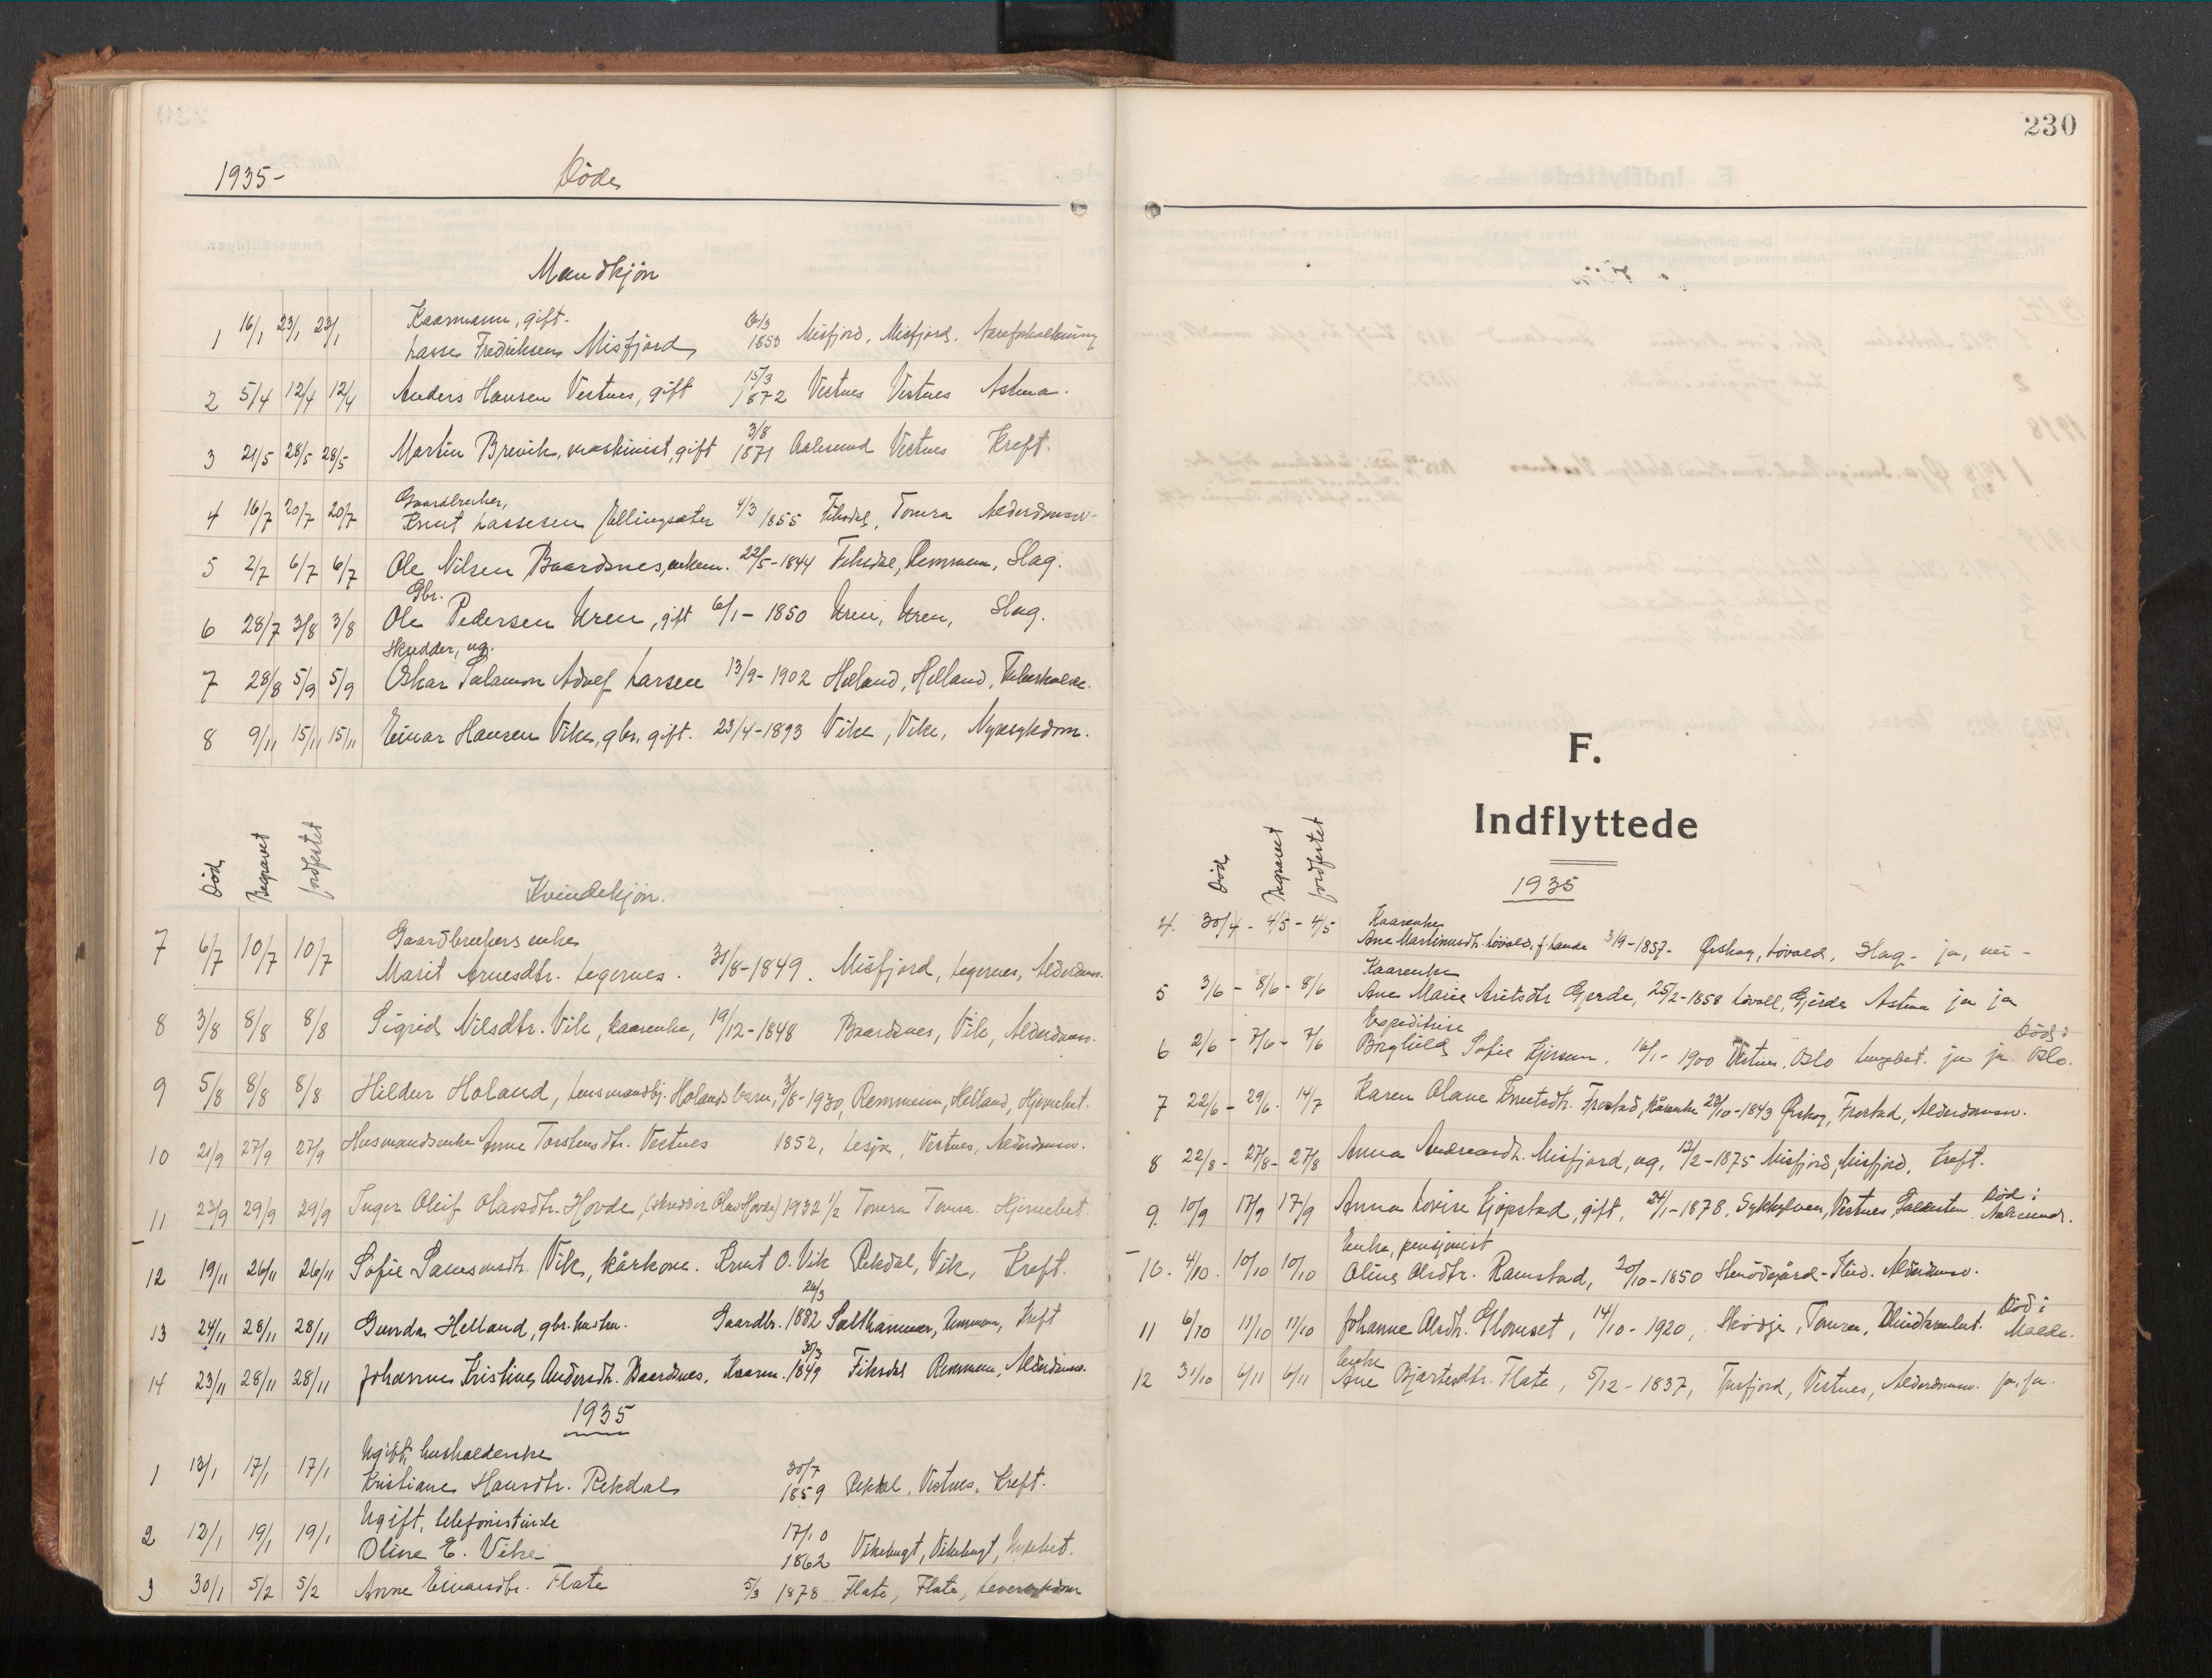 1935-
Døde
Mandkjøn
Kaarmann, gift.
1 16/1 23/1 23/1 Lasse Fredriksen Misfjord 1853 Misfjord, Misfjord,
2 5/4 12/4 12/4 Anders Hansen Vestnes, gift 15/3 1872 Vestnes Vestnes Astma.
3 21/5 28/5 28/5 Martin Brevik, maskinist, gift 3/8 1871 Aalesund Vestnes Kreft.
Gaardbruker,
4 16/7 20/7 20/7 Knut Lassesen Ellingsæter 4/3 1855 Fiksdal, Tomra Alderdomsv.
5 2/7 6/7 6/7 Ole Nilsen Baardsnes, enkem. 22/5-1844 Fiksdal, Remmem, Slag.
Gbr.
6 28/7 3/8 3/8 Ole Pedersen Uren, gift 6/1-1850 Uren, Uren, Slag.
Skredder, ug.
7 28/8 5/9 5/9 Oskar Salamon Adolf Larsen 13/9-1902 Helland, Helland, Tuberkulose.
8 9/11 15/11 15/11 Einar Hansen Vike, gbr. gift. 23/4-1893 Vike, Vike, Nyresykdom.
Død Begravet Jordfestet
Kvindekjøn.
Gaardbrukers enke
7 6/7 10/7 10/7 Marit Arnesdtr. Legernes. 31/8-1849. Misfjord, Legernes, Alderdoms.
8 3/8 8/8 8/8 Sigrid Nilsdtr. Vik, kaarenke, 19/12-1848 Baardsnes, Vik, Alderdomsv.
9 5/8 8/8 8/8 Hildur Holand, Lensmandbtj. Holands barn, 3/8-1930, Remmem, Helland, Hjernebet.
10 21/9 27/9 27/9 Husmandsenke Anne Torstensdtr. Vestnes 1852, Lesja, Vestnes, Alderdomsv.
11 23/9 29/9 29/9 Inger Oleif Olavsdtr. Hovde, (skredder Olav Hovde) 1932 1/2 Tomra Tomra. Hjernebet.
12 19/11 26/11 26/11 Sofie Vik, kårkone. Knut O. Vik Rekdal, Vik, Kreft.
13 24/11 28/11 28/11 Gunda Helland, gbr. hustru. Gaardbr. 26/3 1882 Salthammer, Remmem, Kreft
14 23/11 28/11 28/11 Johanne Kristine Andersdtr. Baardsnes. Kaaren. 30/3 1849 Fiksdal Remmem, Alderdomsv.
1935
Ugift, husholderske
1 13/1 17/1 17/1 Kristiane Hansdtr. Rekdal 30/7 1859 Rekdal, Vestnes, Kreft.
Ugift, telefonistinde
2 12/1 19/1 19/1 Oline E. Vike 17/10 1862 Vikebugt, Vikebugt,
3 30/1 5/2 5/2 Anne Einarsdtr. Flate 5/3 1878 Flate, Flate, Leversykdom
230
F.
Indflyttede
1935
Død Begravet Jordfestet
Kaarenke
4. 30/4 - 4/5 - 4/5 Ane Martinusdtr. Løvold, f. Lande 3/9-1857- Ørskog, Løvold, Slag - ja, nei -
Kaarenke
5 3/6 - 8/6 - 8/6 Ane Marie Gjerde, 25/2-1858 Løvoll, Gjerde Astma ja ja
Expeditrise
6 2/6 - 7/6 - 7/6 Borghild Sofie Gjersem, 16/1-1900 Vestnes, Oslo Lungebet. ja ja. Død i Oslo.
7 22/6 - 29/6. 14/7 Karen Olave Knutsdtr. Frostad, kårenke 23/10-1843 Ørskog, Frostad, Alderdomsv.
8 22/8 - 27/8 - 27/8 Anna Andreasdtr. Misfjord, ug, 12/2-1875 Misfjord, Misfjord, Kreft.
9. 10/9 17/9 17/9 Anna Lovise Kjøpstad, gift, 24/1-1878, Sykkylven, Vestnes, Galdesten. Død i Aalesund.
Enke, pensjonist
10. 4/10. 10/10 10/10 Oline Olsdtr. Ramstad, 20/10-1850 Alderdomsv.
11 6/10 11/10 11/10 Johanne Olsdtr. Glomset, 14/10-1920, Skodje, Tomra, Blindtarmbet. Død i Molde.
Enke
12 31/10 6/11 6/11 Ane Bjartesdtr. Flate, 5/12-1837, Vestnes, Alderdomsv. ja, ja.